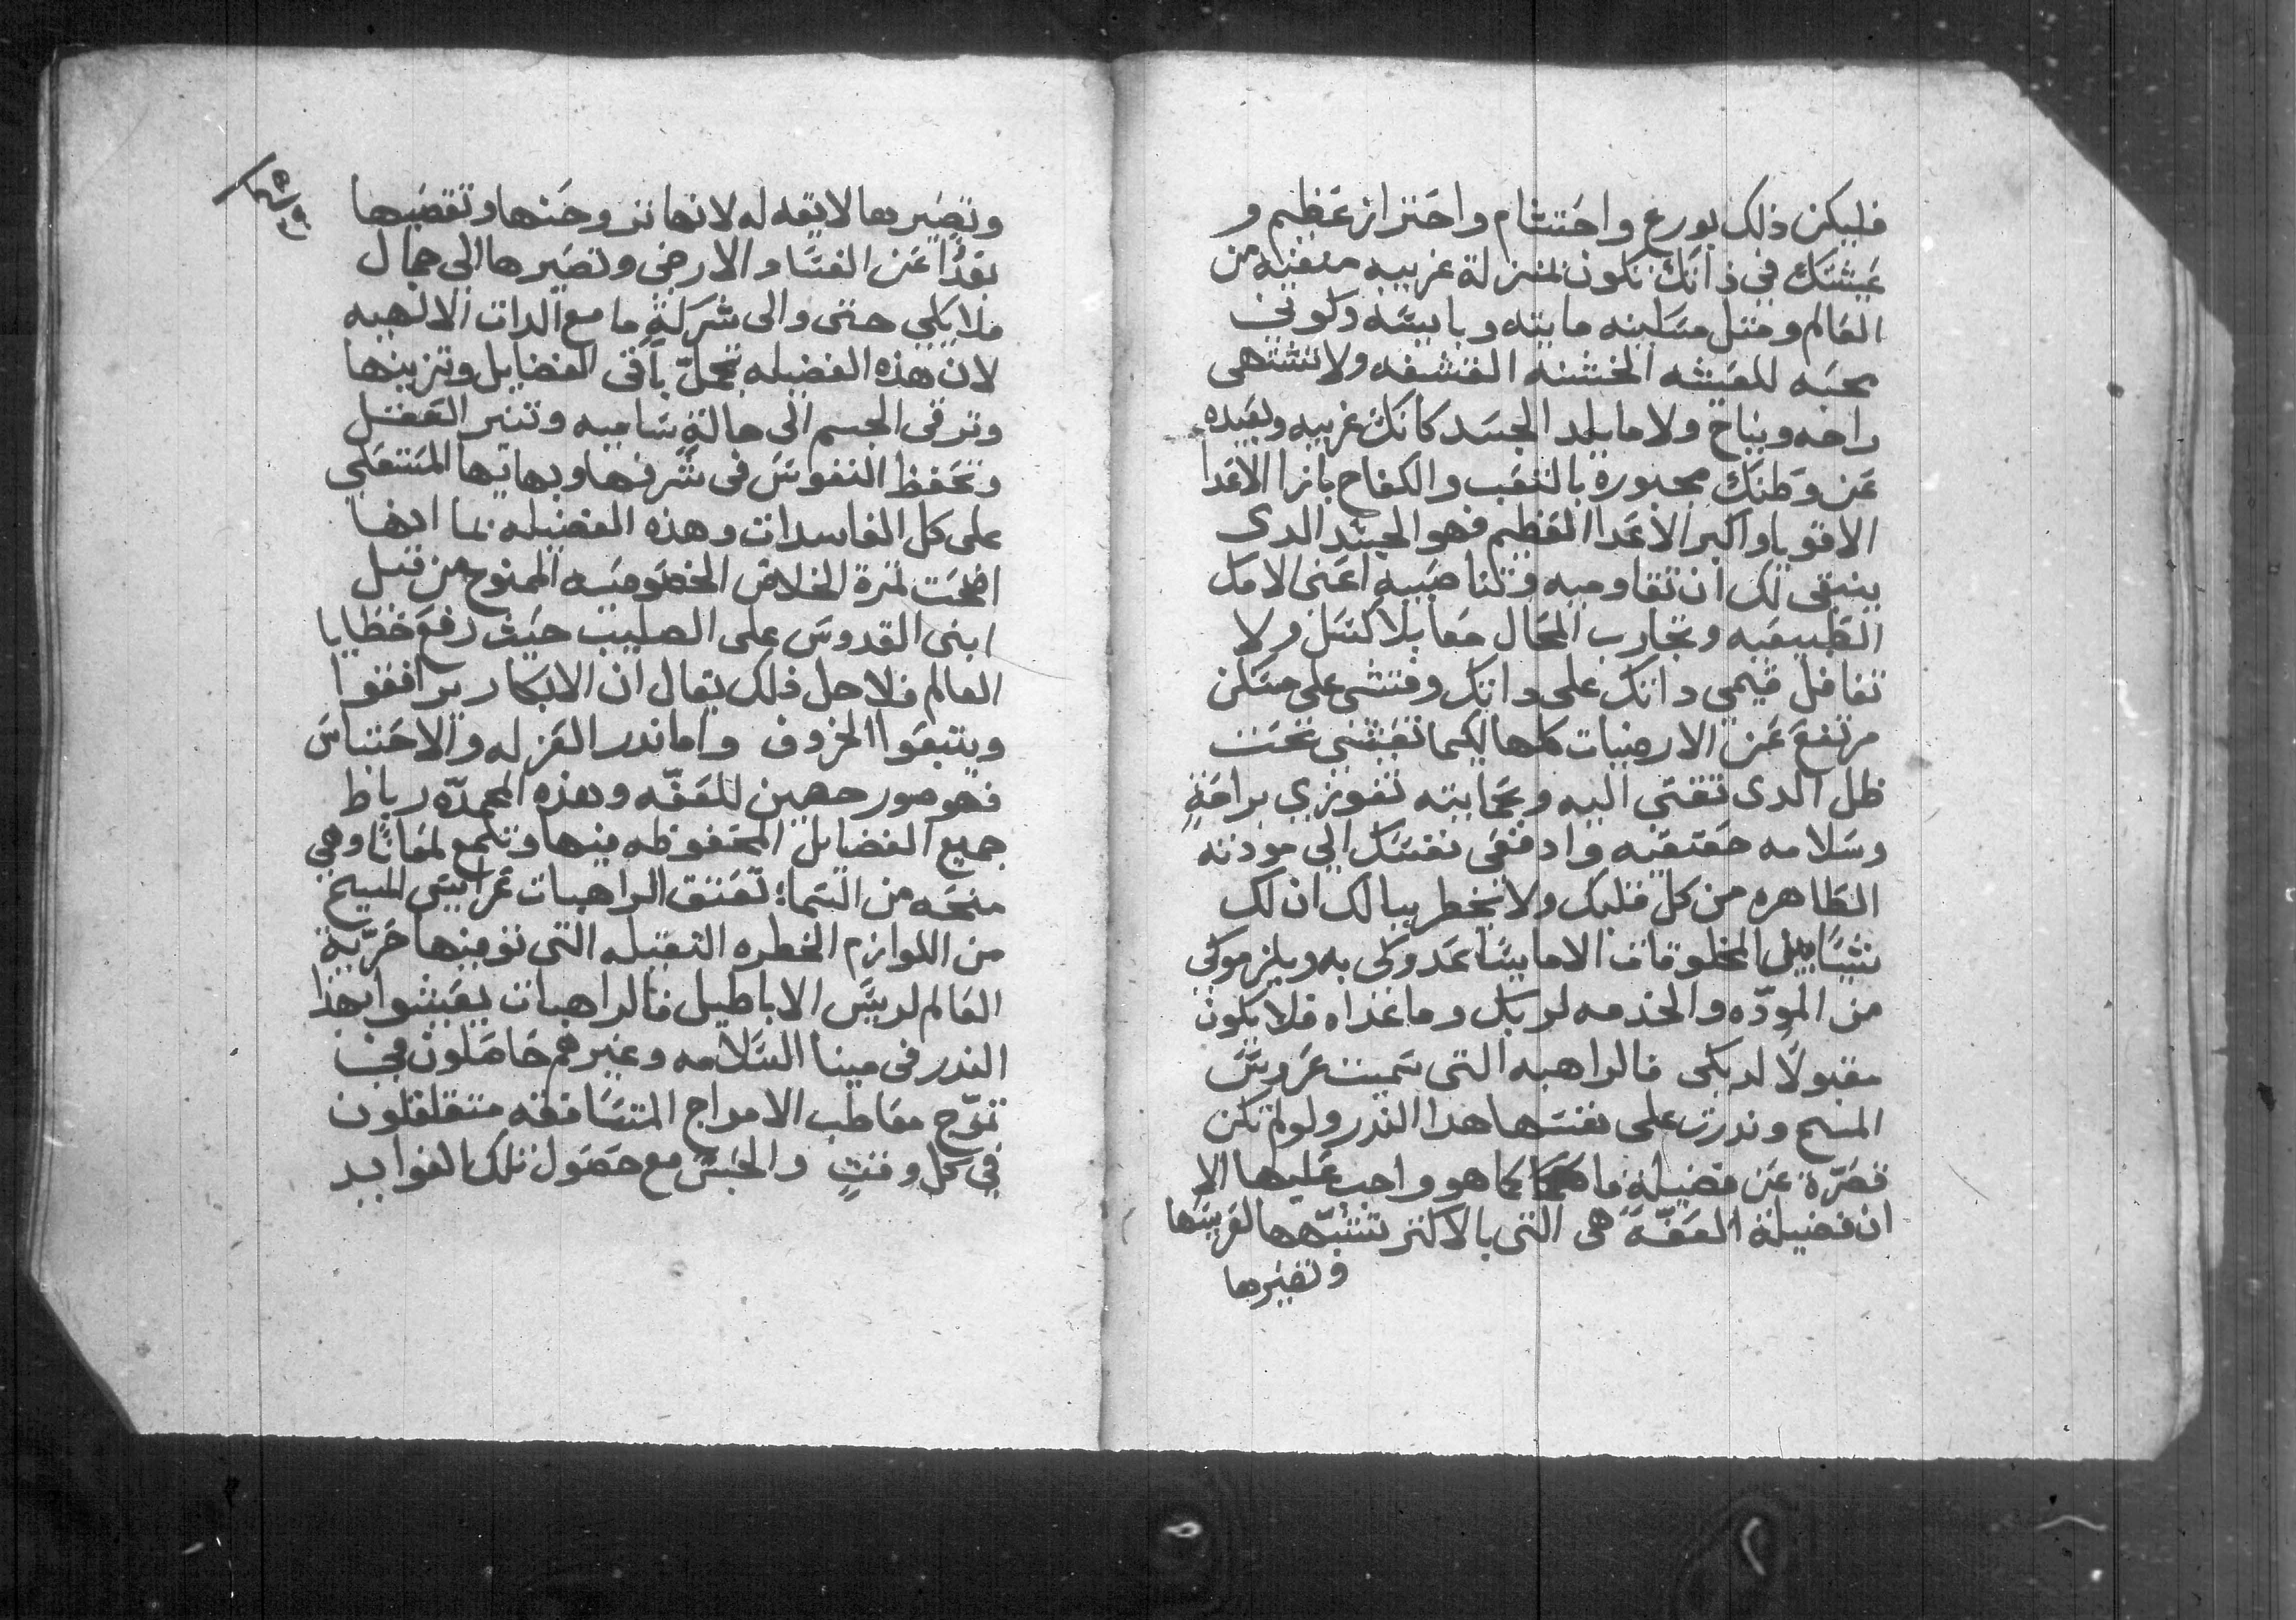 فليكن ذلك بورع واحتشام واحتراز عظيم و
عيشتك في ذاتك تكون بمنزلة غريبه منفيه من
العالم ومثل مسكينه مايته وبايسه وكوني
محبه للمعيشه الخشنه القشفه ولا تشتهي
راحه ونياح ولا ما يلد الجسد كانك غريبه وبعيده
عن وطنك مجبوره بالتعب والكفاح بازا الاعدا
الاقويا واكبر الاعدا العظيم فهو الجسد الدى
ينبغى لك ان تقاوميه وتناصبيه اعنى الاميال
الطبيعيه وتجارب المحال معا بلا كسل ولا
تغافل قيمي داتك على داتك وفتشي على مسكن
مرتفع عن الارضيات كلها لكيما تعيشى تحت
ظل الدى تلتجي اليه وبحمايته تفوزي براحةٍ
وسلامه حقيقيه وادفعى نفسك الي مودته
الطاهره من كل قلبك ولا يخطر ببالك ان لك
بكل المخلوقات الا ما يساعدوكى به ويلزموكي
من المودّه والخدمه لربك وما عداه فلا يكون
مقبولًا لديكى فالراهبه التى سميت عروس
المسيح وندرت على نفسها هدا الندر ولو لم تكن
قصرّة عن فضيلةٍ ما كما هو واجب عليها الا
ان فضيلة العفّه هى التى بالاكثر تشبّهها لعريسها
وتصيرها
وتصيرها لايقه له لانها تروحنها وتقصيها
بعدًا عن الفساد الارضى وتصيرها الى جمال
ملايكي حتى والى شركةٍ ما مع الدات الالهيه
لان هذه الفضيله تجملّ باقى الفضايل وتزينها
وترقى الجسم الى حالةٍ ساميه وتنير العقل
وتحفظ النفوس فى شرفها وبهايها المستعلي
على كل الفاسدات وهذه الفضيله بما انها
اضحت ثمرة الخلاص الخصوصيه الممنوح من قبل
ابنى القدوس على الصليب حيث رفع خطايا
العالم فلاجل ذلك يقال ان الابكار يرافقوا
ويتبعوا الخروف واما ندر العزله والاحتباس
فهو سور حصين للعفّه وهذه المحمدّه رباط
جميع الفضايل المحفوظه فيها وتلمع لمعانًا وهي
منحه من السما؛ تعتق الراهبات عرايس المسيح
من اللوازم الخطره الثقيله التى توفيها حريّة
العالم لرييس الاباطيل فالراهبات يعيشوا بهذا
الندر فى مينا السلامه وغيرهم حاصلون في
تموّج معاطب الامواج المتساففه متقلقلون
في كل وقتٍ والحبس مع حصول تلك الفوايد